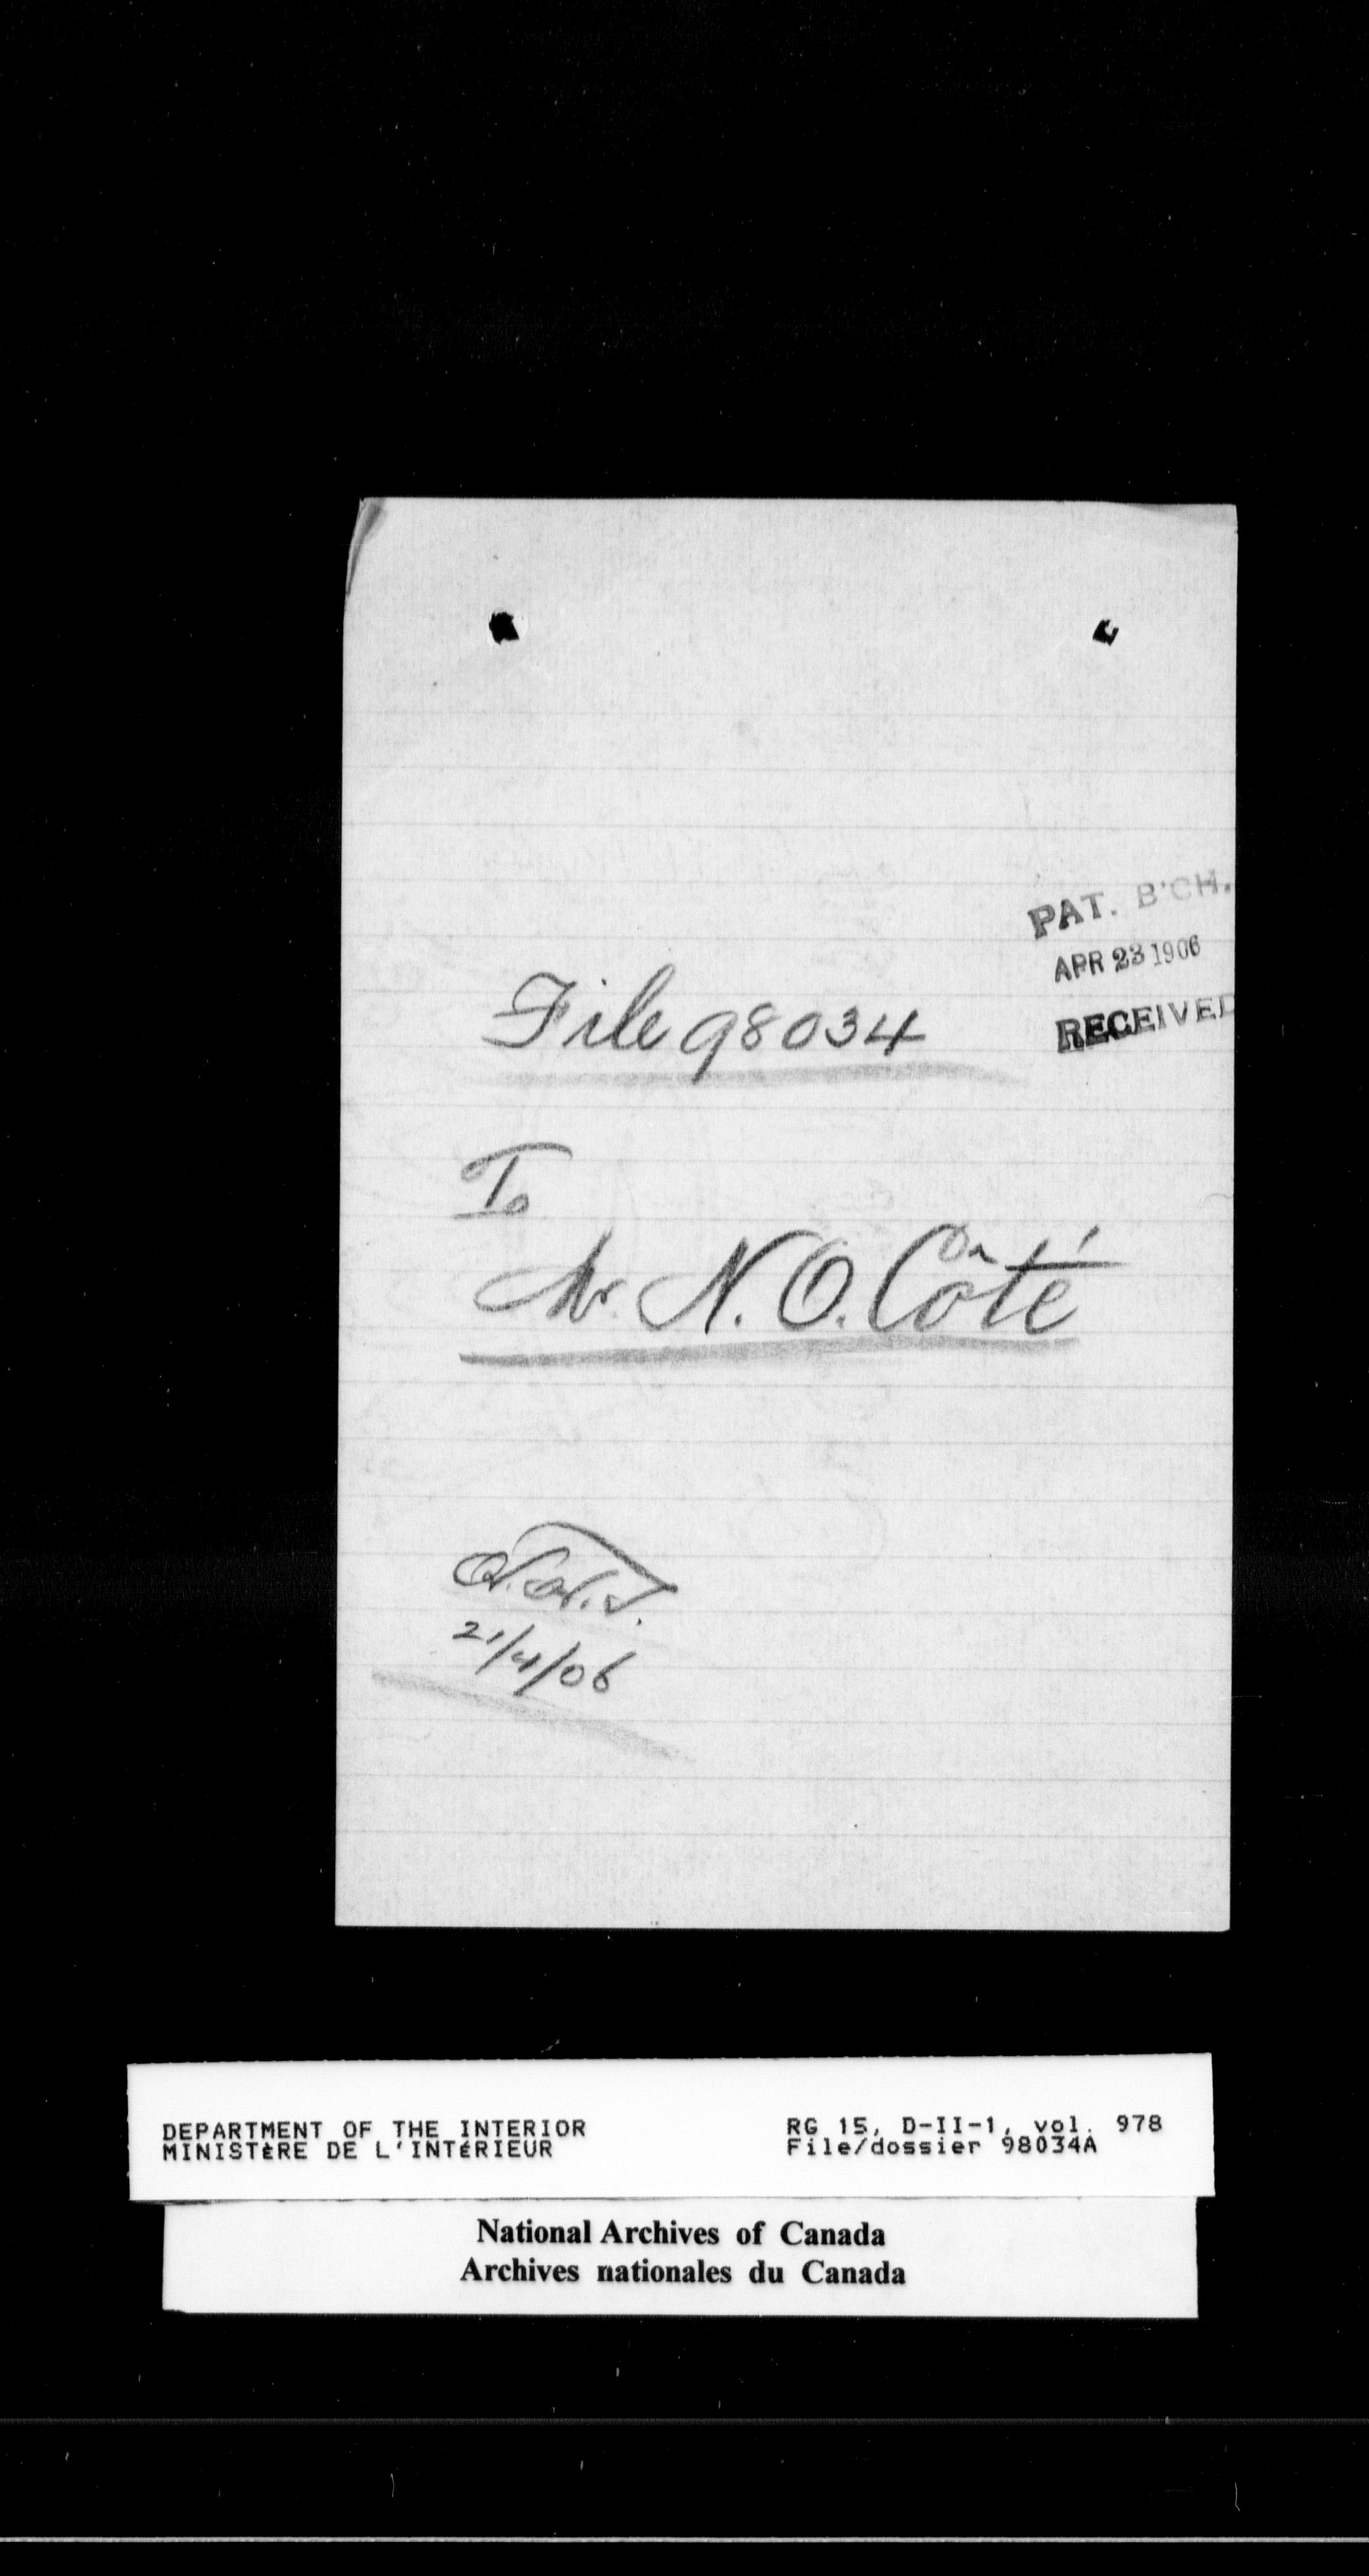 PAT. B'CH.
APR 23 1906
RECEIVED
File 98034
To
Mr. N. O. Côté
21/4/06
DEPARTMENT OF THE INTERIOR
MINISTÈRE DE L'INTÉRIEUR
RG 15, D-II-1, vol. 978
File/dossier 98034A
National Archives of Canada
Archives nationales du Canada